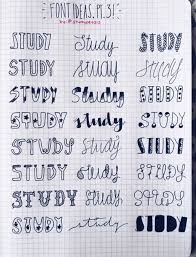 FONT IDEAS. PT.3!
STUDY Study STUDY
STUDY study Study
STUDY Study STUDY
STUDY study Study
STUDY Study STUDY
STUDY Study STUDY
STUDY Study STUDY
STUDY study STUDY